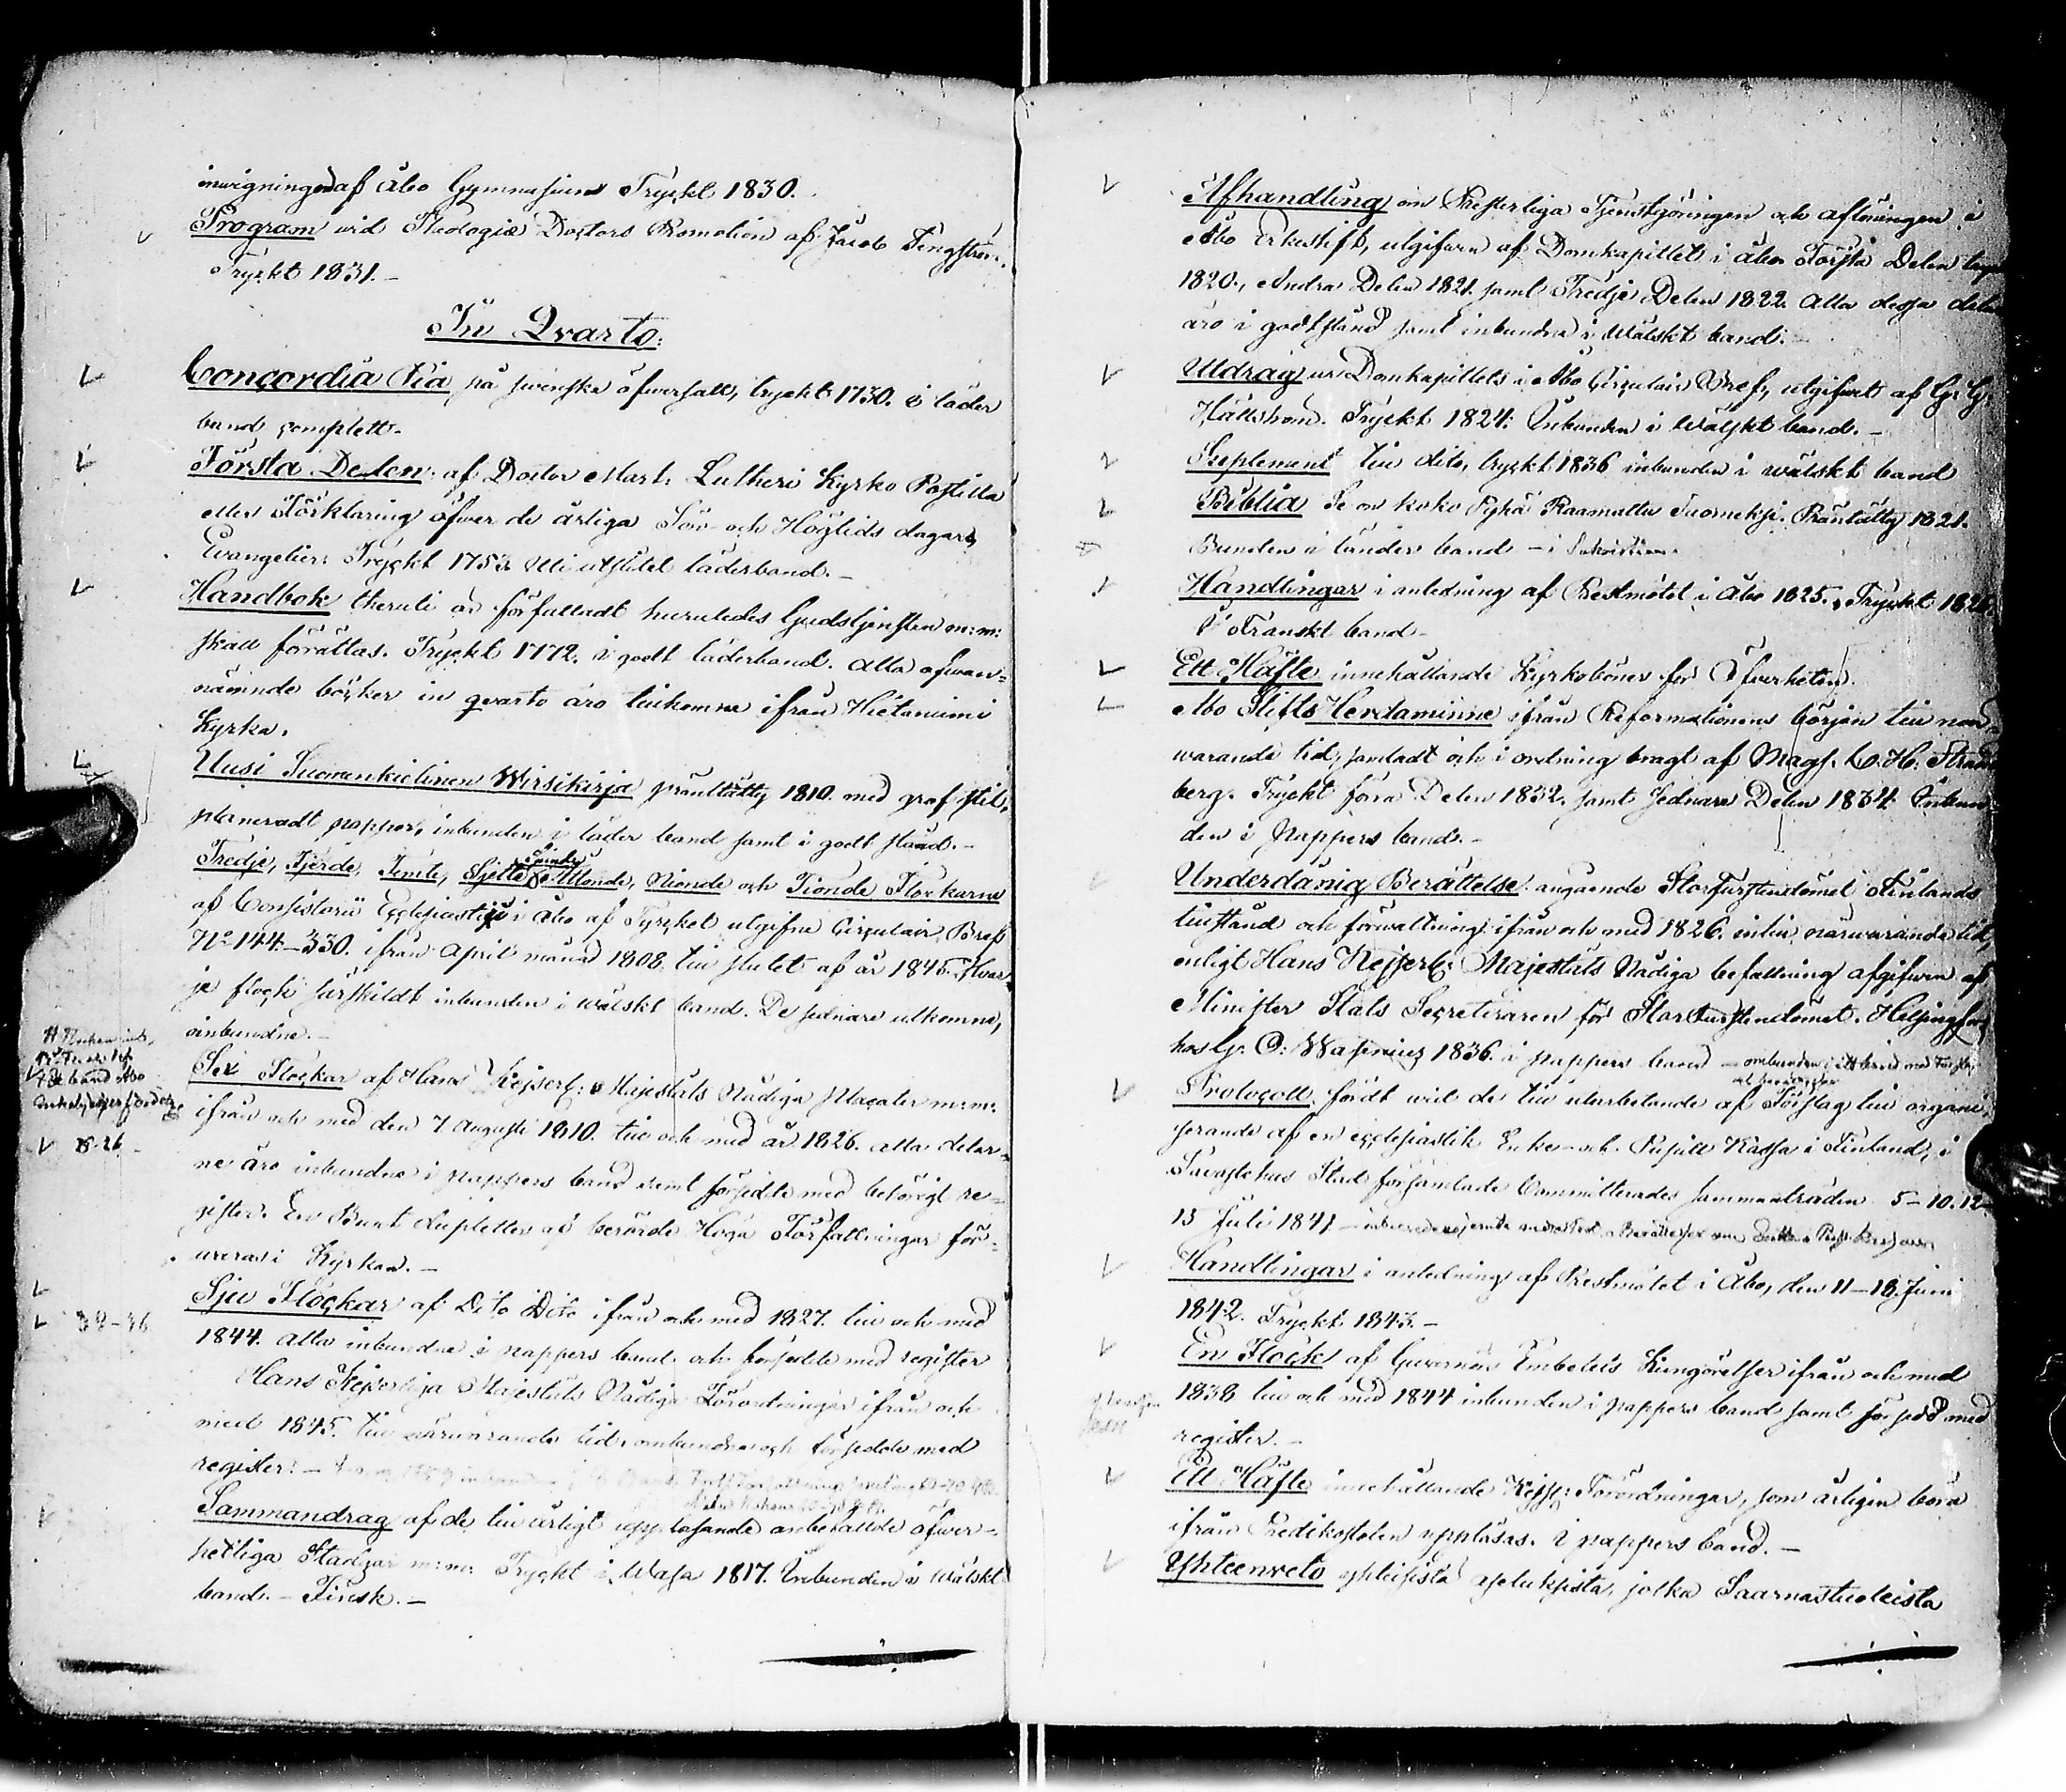 inwigningen af Åbo Gymnasium Tryckt 1830.
Program wid Theologiæ Doctors Promotion af Jacob Tengström.
Tryckt 1831.-
In Qvarto.
Concordia Pia på swenska öfwersatt, tryckt 1730. i läder
band complett.
Första Delen af Doctor Mart. Lutheri Kyrko Postilla
eller Förklaring öfwer de årliga Sön- och Högtids dagars
Evangelier. Tryckt 1753. Uti utslitet läderband.-
Handbok theruti är författadt huruledes Gudstjensten m:m:
skall förättas. Tryckt 1772. i godt läderband. Alla ofwan-
nämnde böcker in qvarto äro tillkomne ifrån Hietaniemi
Kyrka.
Uusi Suomenkielinen Wirsikirja präntätty 1810. med grof stil,
planeradt papper, inbunden i läder band samt i godt stånd.-
Tredje, Fjerde, Femte, Sjette, Sjunde, Åttonde, Nionde och Tionde Flockarne
af Consistorii Ecclesiastici i Åbo af Trycket utgifne Circulair Bref
No 144-330. ifrån April månad 1808. till slutet af år 1845. Hwar-
je flock särskildt inbunden i wälskt band. De sednare utkomne,
oinbundne.-
Sex Flockar af Hans Kejserl: Majestäts Nådiga Placater m:m:
ifrån och med den 7 Augusti 1810. till och med år 1826. alla delar-
ne äro inbundne i pappers band samt försedde med behörigt re-
gister. En Bunt dupletter af berörde Höga Författningar för-
waras i Kyrkan.-
V 18-26
Sju Flockar af Dito Dito ifrån och med 1827. till och med
38-46
1844. alla inbundne i pappers band och försedde med register
Hans Kejserliga Majestäts Nådiga Förordningar ifrån och
med 1845. till närwarande tid, oinbundne och försedde med
register.-
Sammandrag af de till årligt uppläsande anbefallde öfwer-
hetliga Stadgar m:m: Tryckt i Wasa 1817. Inbunden i Wälskt
band.- Finsk.-
Afhandling om Presterliga Tjenstgöringen och aflöningen i
Åbo Erkestift, utgifwen af Domkapitlet i Åbo Första Delen
1820., Andra Delen 1821. samt Tredje Delen 1822. Alla dessa delar
äro i godt stånd samt inbundne i Wälskt band.
Utdrag ur Domkapitlets i Åbo Circulair Bref, utgifwet af G. G.
Hällström. Tryckt 1824. Inbunden i Wälskt band.-
Supplement till dito, tryckt 1836 inbunden i wälskt band
Biblia Se on koko Pyhä Raamattu Suomeksi. Präntätty 1821.
Bunden i läder band - i Sakristian.
Handlingar i anledning af Prestmötet i Åbo 1825. Tryckt
i Franskt band-
Ett Häfte innehållande Kyrkobönen för Öfwerheten.
Åbo Stifts Herdaminne ifrån Reformationens början till när-
warande tid, samladt och i ordning bragt af Mag. C. H. Strand-
berg. Tryckt förra Delen 1832. samt sednare Delen 1834. Inbun-
den i Pappers band.-
Underdånig Berättelse angående Storfurstendömet Finlands
tillstånd och förwaltning ifrån och med 1826. intill närwarande tid,
enligt Hans Kejserl: Majestäts Nådiga befallning afgifwen af
Minister Stats Secreteraren för Storfurstendömet. Helsingfors
hos G. O: Wasenius 1836. i pappers band
Protocoll fördt wid de till utarbetande af Förslag till organi-
serande af en ecclesiastik Enke- och Pupill Kassa i Finland, i
Tavastehus Stad församlade Committerades sammanträden 5-10. 12-
15 Juli 1841
Handlingar i anledning af Prestmötet i Åbo, den 11-18. Juni
1842. Tryckt 1843.-
En Flock af Guvernörs Embetets Kungörelser ifrån och med
1838 till och med 1844 inbunden i pappers band samt försedd med
register.-
Ett Häfte innehållande Kejs: Förordningar, som årligen böra
ifrån Predikostolen uppläsas. i pappers band.-
Yhteenweto yhteisistä asetuksista, jotka Saarnastuolista